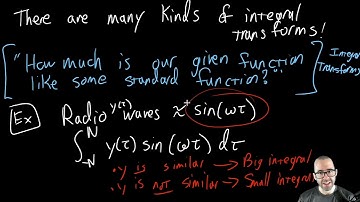 There are many kinds of integral
transforms!
["How much is our given function
like some standard function?"]
Integral
Transforms
Ex Radio y(τ) waves ≈ sin(ωτ)
∫_{-N}^{N} y(τ) sin(ωτ) dτ
• y is similar → Big integral
• y is not similar → Small integral